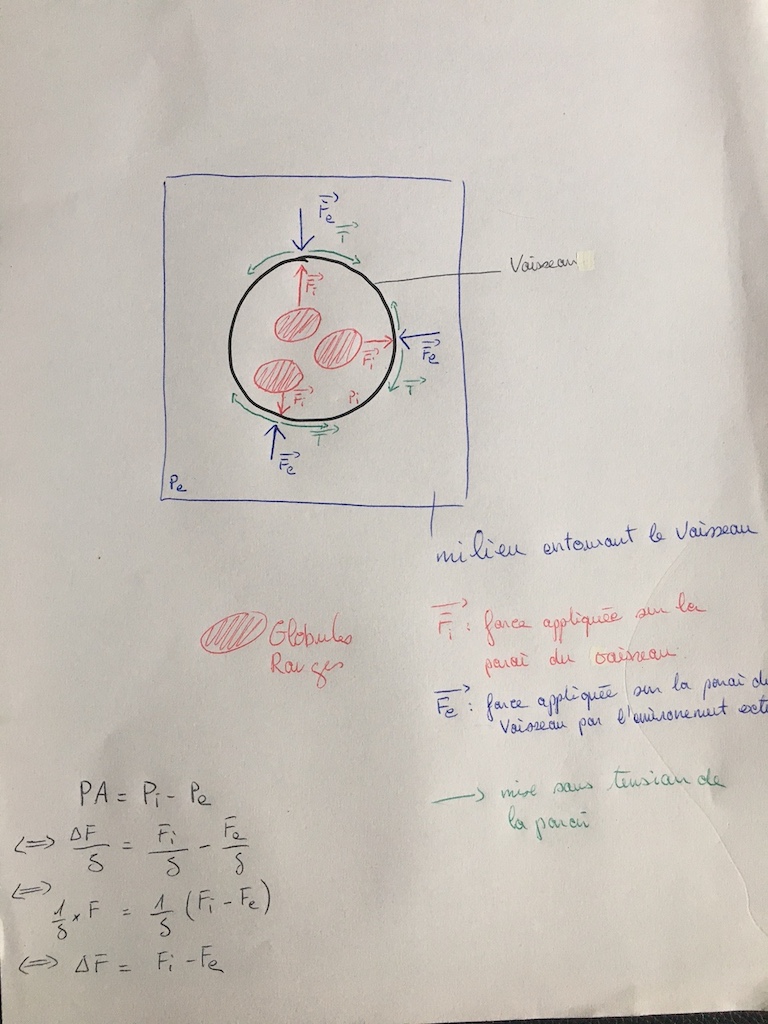 F⃗e
T⃗
Vaisseau
F⃗i
F⃗i
F⃗e
F⃗i
Pi
T⃗
T⃗
F⃗e
Pe
milieu entourant le Vaisseau
Globules
Rouges
F⃗i : force appliquée sur la
paroi du vaisseau.
F⃗e : force appliquée sur la paroi du
Vaisseau par l'environement exte
→ mise sous tension de
la paroi
PA = Pi - Pe
<=> ΔF/S = Fi/S - Fe/S
<=>
1/S × F = 1/S (Fi - Fe)
<=> ΔF = Fi - Fe